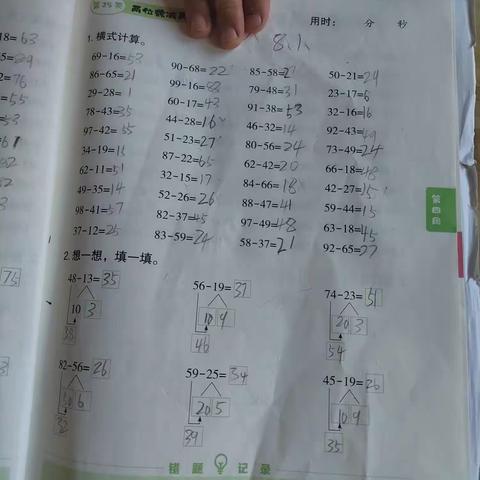 第25天 两位数减两位数
8.1
用时： 分 秒
1.横式计算。
69-16=53 90-68=22 85-58=2 50-21=29
86-65=21 99-16=83 79-48=31 23-17=6
29-28=1 60-17=43 91-38=53 32-16=16
78-43=35 44-28=16 46-32=14 92-43=49
97-42=55 51-23=27 80-56=24 73-49=24
34-19=15 87-22=65 62-42=20 66-18=48
62-11=51 32-15=17 84-66=18 42-27=15
49-35=14 52-26=26 88-47=41 59-44=15
98-41=57 82-37=45 97-49=48 63-18=45
37-12=25 83-59=24 58-37=21 92-65=27
2.想一想，填一填。
48-13=35 56-19=37 74-23=51
10 3 10 9 20 3
38 46 54
82-56=26 59-25=34 45-19=26
50 6 20 5 10 9
32 39 35
错题记录
第四周
18=63
75